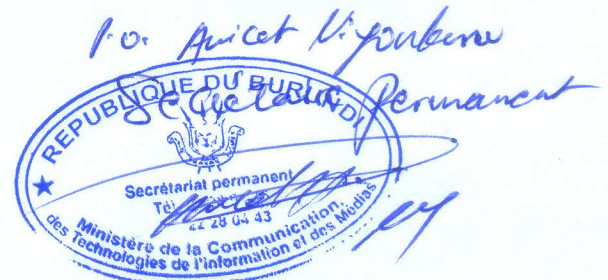 P.O. Anicet N
Secrétaire Permanent
REPUBLIQUE DU BURUNDI
Secrétariat permanent
Tél
22 28 04 43
Ministère de la Communication,
des Technologies de l'Information et des Médias